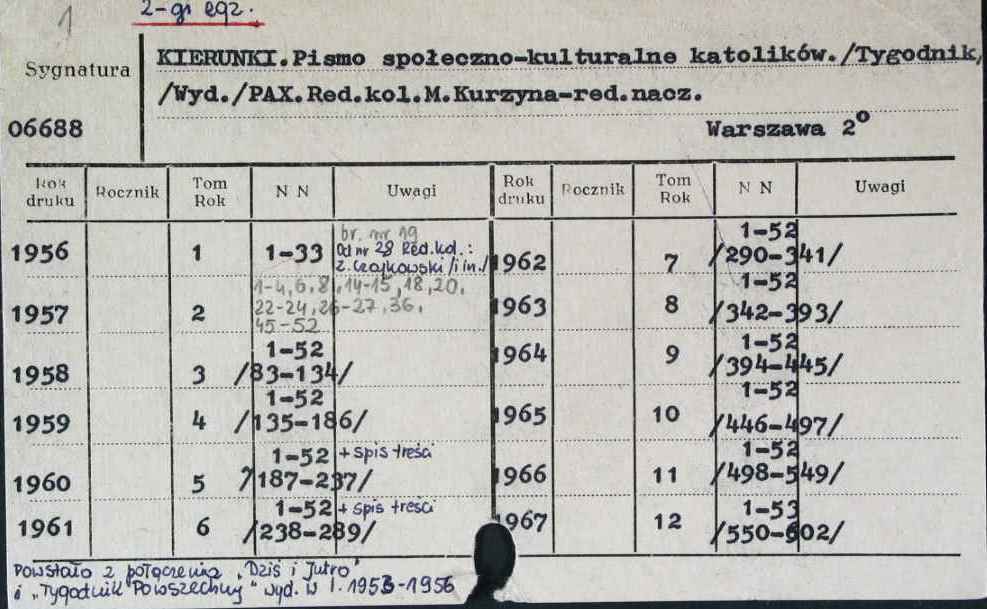 1
2-gi egz.
Sygnatura
KIERUNKI.Pismo społeczno-kulturalne katolików./Tygodnik,
/Wyd./PAX.Red.kol.M.Kurzyna-red.nacz.
06688
Warszawa 2°
Rok druku Rocznik Tom Rok N N Uwagi Rok druku Rocznik Tom Rok N N Uwagi
1956 1 1-33 br. nr 19
Od nr 28 Red.kol.:
Z. Czajkowski /i in./
1962 7 1-52
/290-341/
1957 2 1-4,6,8,14-15,18,20,
22-24,26-27,36,
45-52
1963 8 1-52
/342-393/
1958 3 1-52
/83-134/
1964 9 1-52
/394-445/
1959 4 1-52
/135-186/
1965 10 1-52
/446-497/
1960 5 1-52 + spis treści
/187-237/
1966 11 1-52
/498-549/
1961 6 1-52 + spis treści
/238-289/
1967 12 1-53
/550-602/
Powstało z połączenia „Dziś i Jutro"
i „Tygodnik Powszechny" wyd. w l. 1953-1956